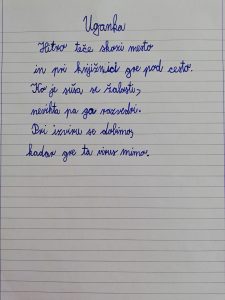 Uganka
Hitro teče skozi mesto
in pri knjižnici gre pod cesto.
Ko je suša se žalosti,
nevihta pa ga razvedri.
Pri izviru se dobimo,
kadar gre ta virus mimo.